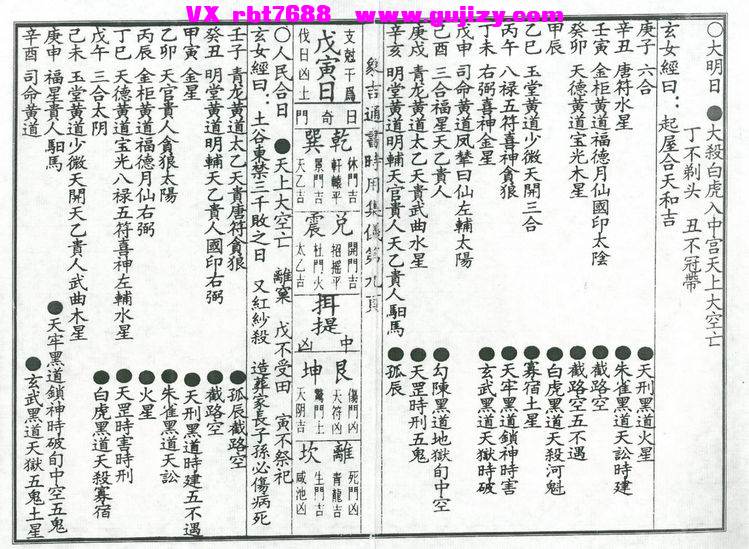 VX rbt7688 www.gujizy.com
○大明日 ●大殺白虎入中宫天上大空亡
丁不剃头 丑不冠帶
玄女經曰： 起屋合天和吉
庚子 六合 ●天刑黑道火星
辛丑 唐符水星 ●朱雀黑道天訟時建
壬寅 金柜黄道福德月仙國印太陰 ●截路空
癸卯 天德黄道宝光木星 ●截路空五不遇
甲辰 ●白虎黑道天殺河魁
乙巳 玉堂黄道少微天開三合 ●寡宿土星
丙午 八禄五符喜神貪狼 ●天牢黑道鎖神時害
丁未 右弼喜神金星 ●玄武黑道天獄時破
戊申 司命黄道凤辇曰仙左輔太陽
己酉 三合福星天乙貴人 ●勾陳黑道地獄旬中空
庚戌 青龙黄道太乙天貴武曲水星 ●天罡時刑五鬼
辛亥 明堂黄道明輔天官貴人天乙貴人馹馬 ●孤辰
象吉通書時用集儀第九頁
支尅干爲伐日凶土
戊寅日
日奇門
乾 休門吉 軒轅平
巽 景門吉 天乙吉
兑 開門吉 招摇平
震 杜門火 太乙吉
中
凶
艮 傷門凶 天符凶
坤 驚門土 太阴吉
離 死門凶 青龍吉
坎 生門吉 咸池凶
○人民合日 ●天上大空亡 離窠 戊不受田 寅不祭祀
玄女經曰： 土谷東禁三千敗之日 又紅紗殺 造葬家長子孫必傷病死
壬子 青龙黄道太乙天貴唐符貪狼 ●孤辰截路空
癸丑 明堂黄道明輔天乙貴人國印右弼 ●截路空
甲寅 金星 ●天刑黑道時建五不遇
乙卯 天官貴人貪狼太陽 ●朱雀黑道天訟
丙辰 金柜黄道福德月仙右弼 ●火星
丁巳 天德黄道宝光八禄五符喜神左輔水星 ●天罡時害時刑
戊午 三合太阴 ●白虎黑道天殺寡宿
己未 玉堂黄道少微天開天乙貴人武曲木星
庚申 福星貴人馹馬 ●天牢黑道鎖神時破旬中空五鬼
辛酉 司命黄道 ●玄武黑道天獄五鬼土星